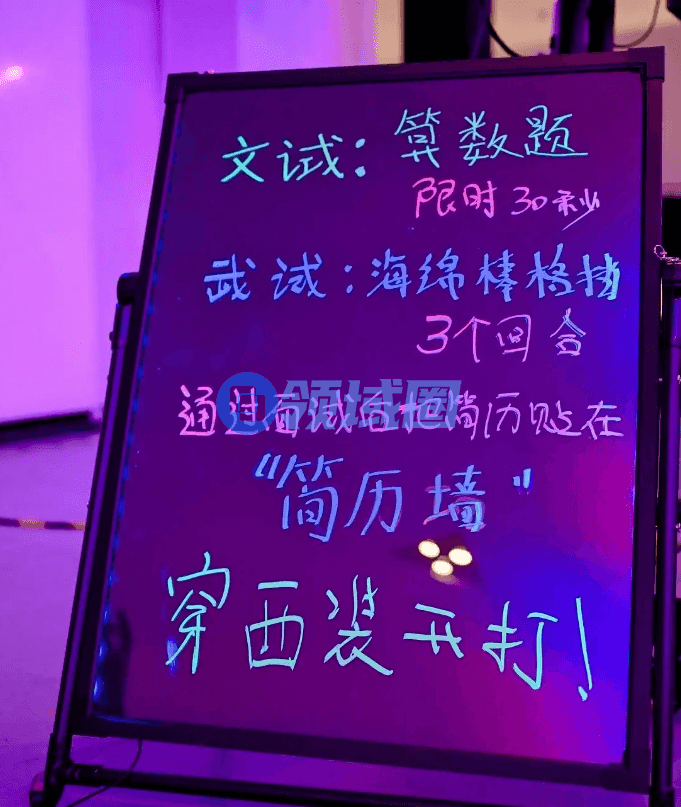 文试：算数题
限时30秒
武试：海绵棒格挡
3个回合
领域圈
通过面试后把简历贴在
“简历墙”
穿西装开打！